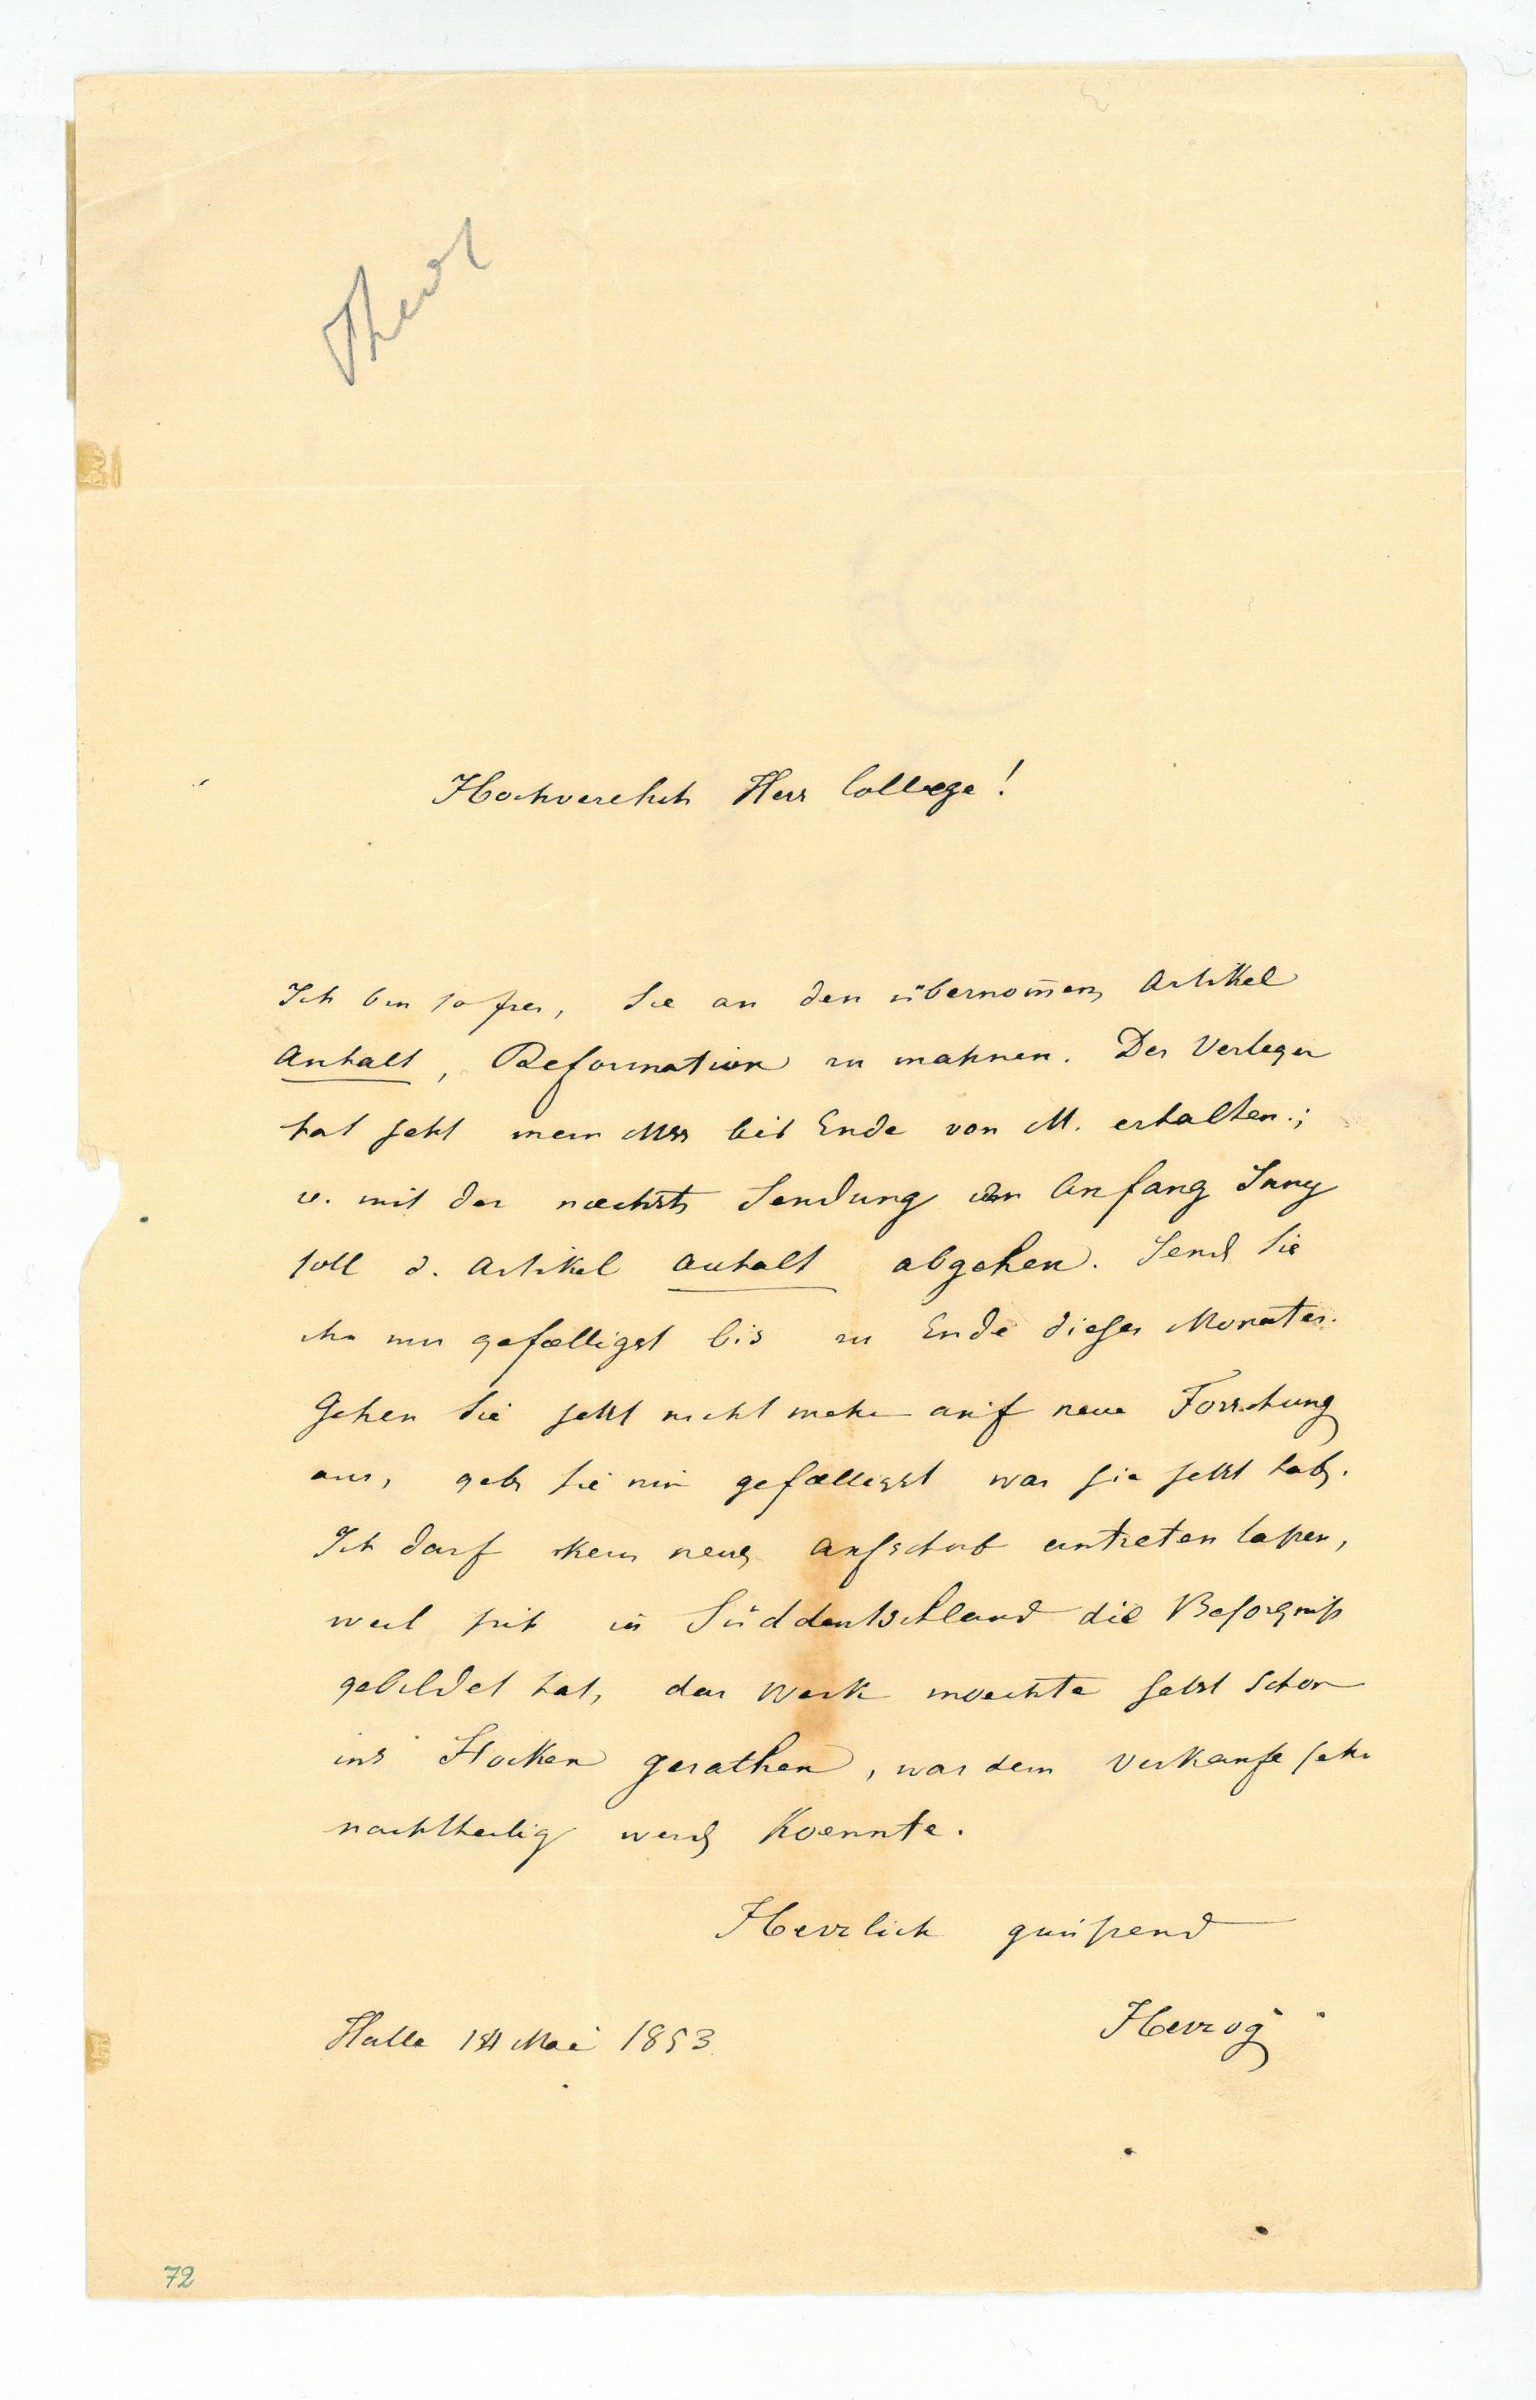 Theol
Hochverehrter Herr College!
Ich bin so frei, Sie an den übernom̄enen Artikel
Anhalt, Reformation zu mahnen. Der Verleger
hat jetzt mein Mss bis Ende von M. erhalten.;
u. mit der næchsten Sendung Anfang Juny
soll d. Artikel Anhalt abgehen. Senden Sie
ihn nur gefælligst bis zu Ende dieses Monates.
Gehen Sie jetzt nicht mehr auf neue Forschung
aus, geben Sie nur gefælligst was Sie jetzt haben.
Ich darf kein neuen Aufschub eintreten laßen,
weil sich in Süddeutschland die Besorgniß
gebildet hat, das Werk moechte jetzt schon
ins Stocken gerathen, was dem Verkaufe sehr
nachtheilig werden koennte.
Herzlich grüißend
Herzog
Halle Mai 1853
72